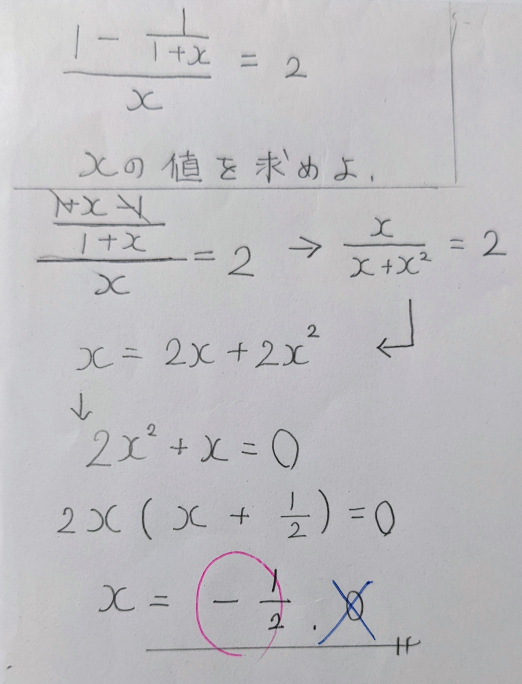 (1 - 1/(1+x))/x = 2
xの値を求めよ.
((1+x-1)/(1+x))/x = 2 → x/(x+x²) = 2
x = 2x + 2x² ↵
↓
2x² + x = 0
2x(x + 1/2) = 0
x = -1/2 . 0